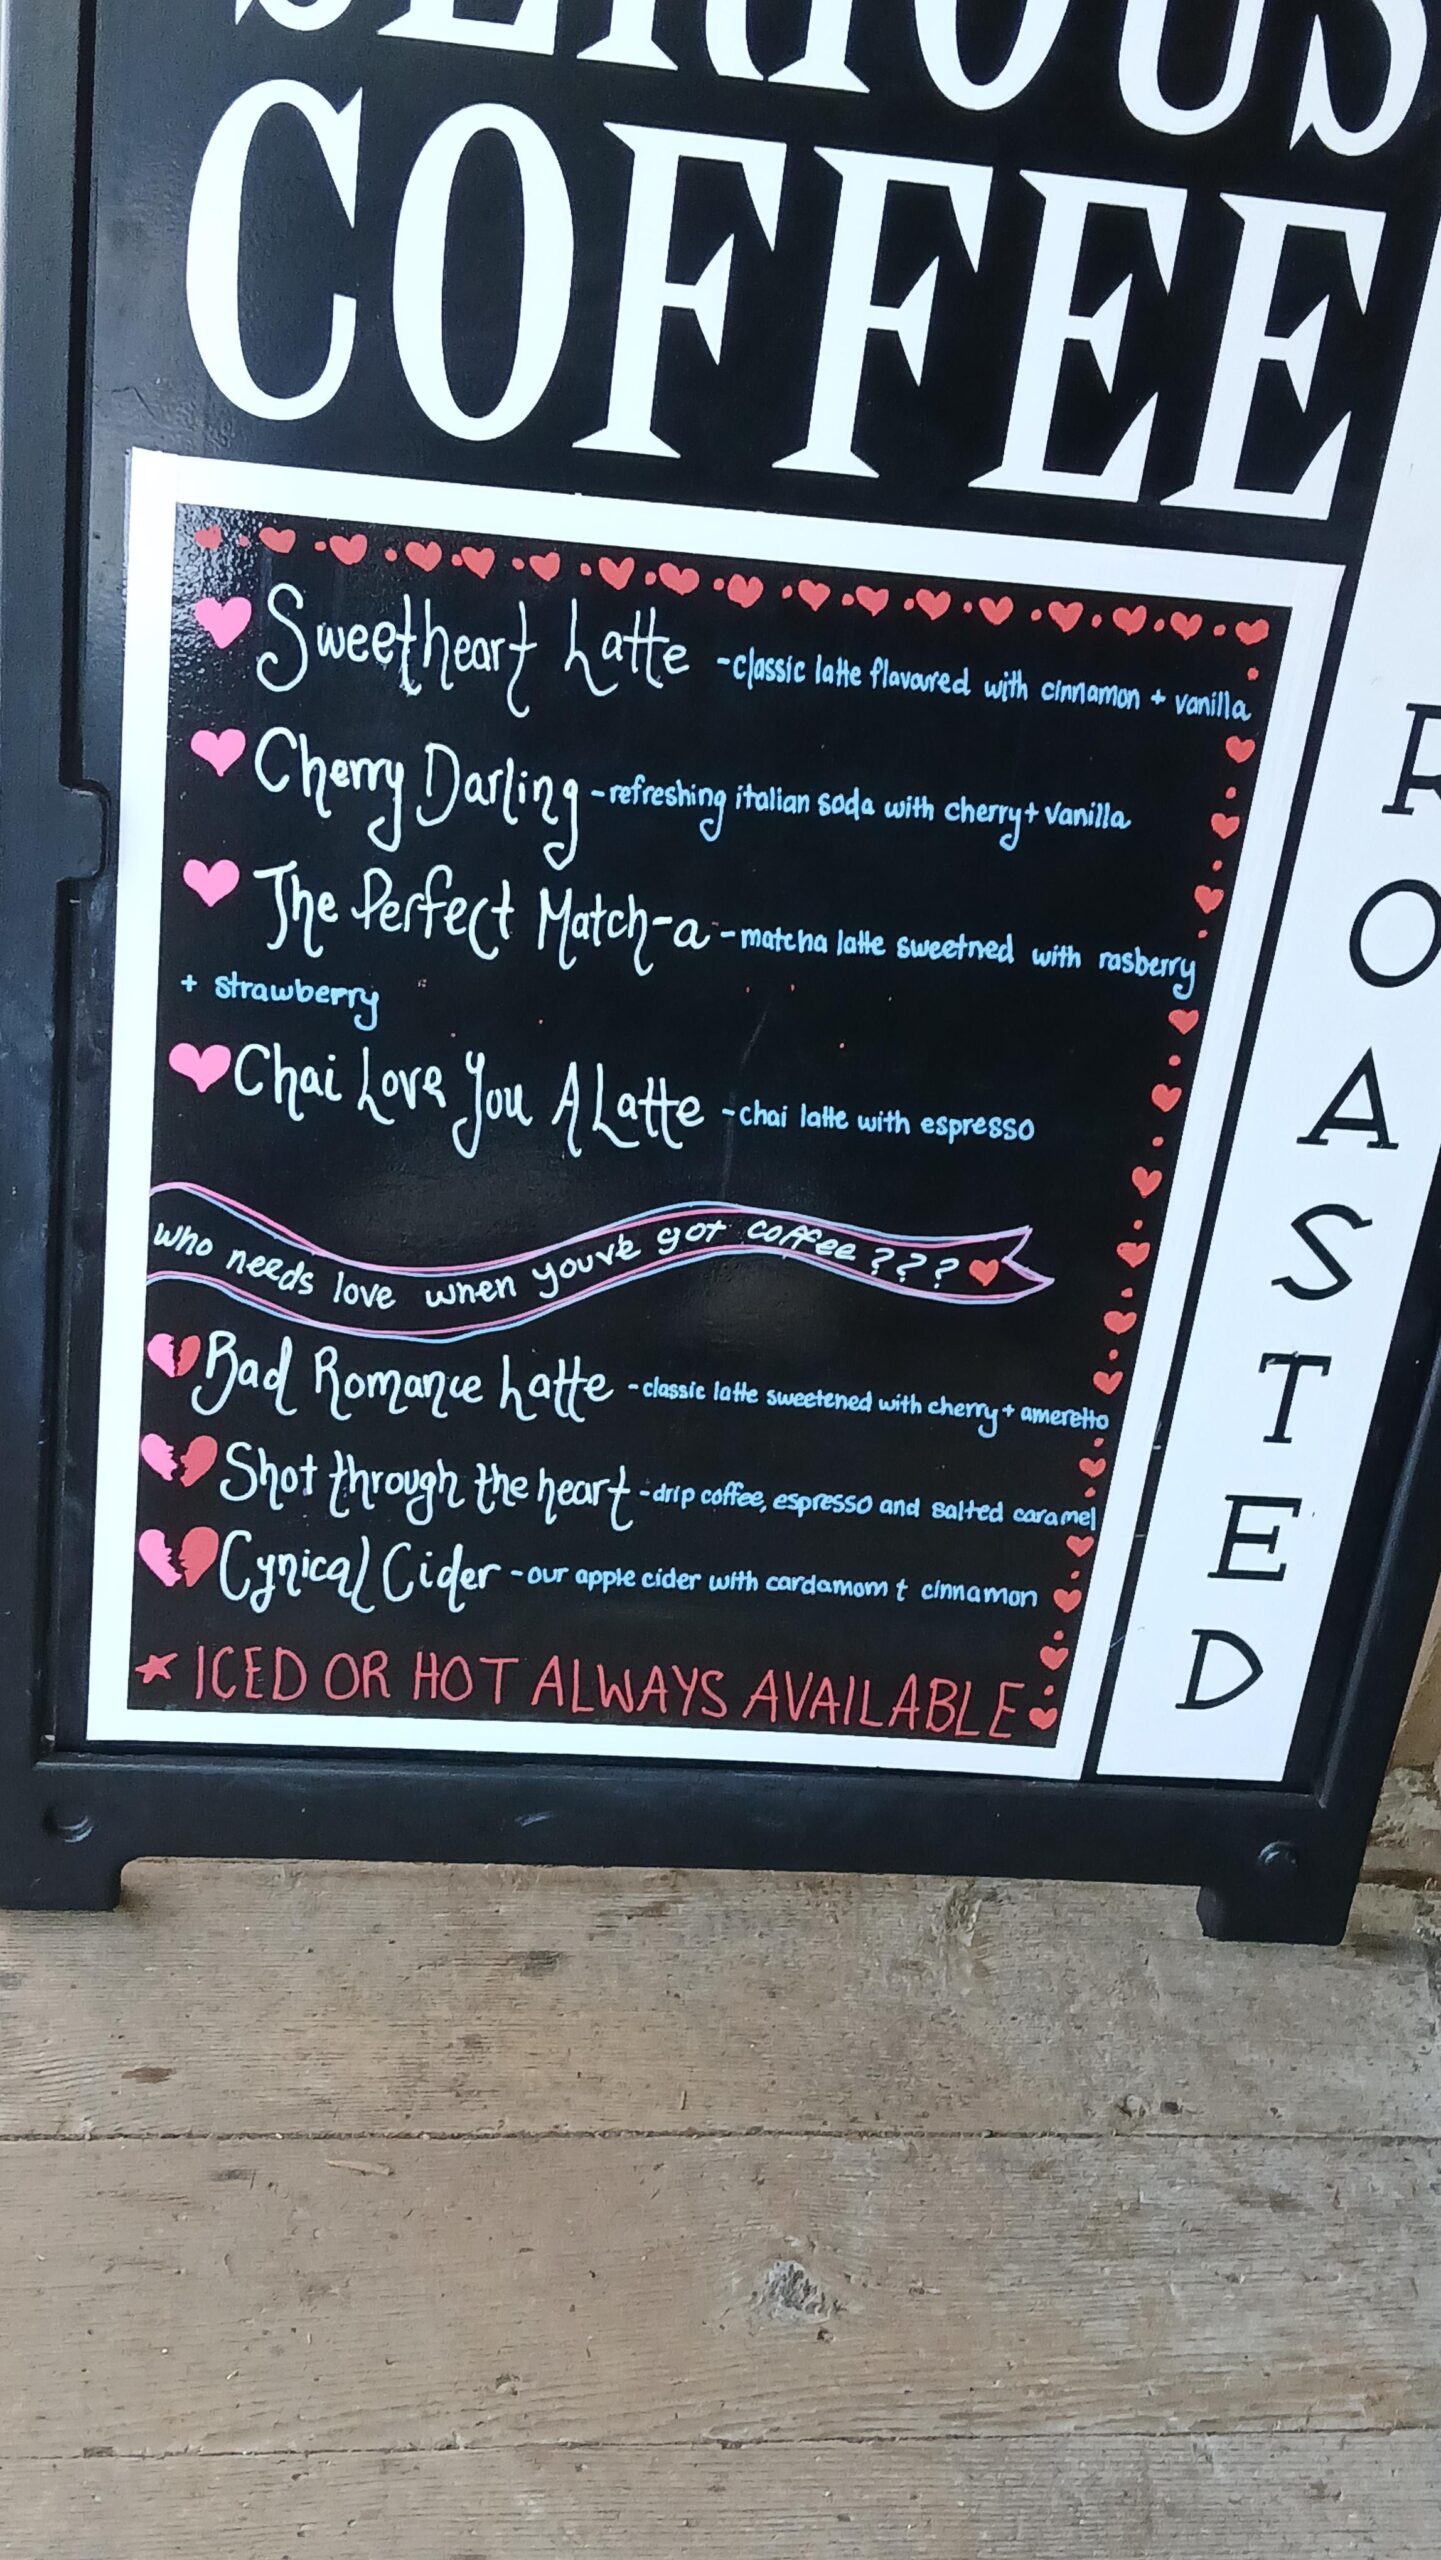 SERIOUS
COFFEE
Sweetheart Latte -classic latte flavoured with cinnamon + vanilla
Cherry Darling -refreshing italian soda with cherry + vanilla
The Perfect Match-a -matcha latte sweetned with rasberry
+ strawberry
Chai Love You A Latte -chai latte with espresso
who needs love when you've got coffee???
Bad Romance Latte -classic latte sweetened with cherry + ameretto
Shot through the heart -drip coffee, espresso and salted caramel
Cynical Cider -our apple cider with cardamom + cinnamon
* ICED OR HOT ALWAYS AVAILABLE
ROASTED